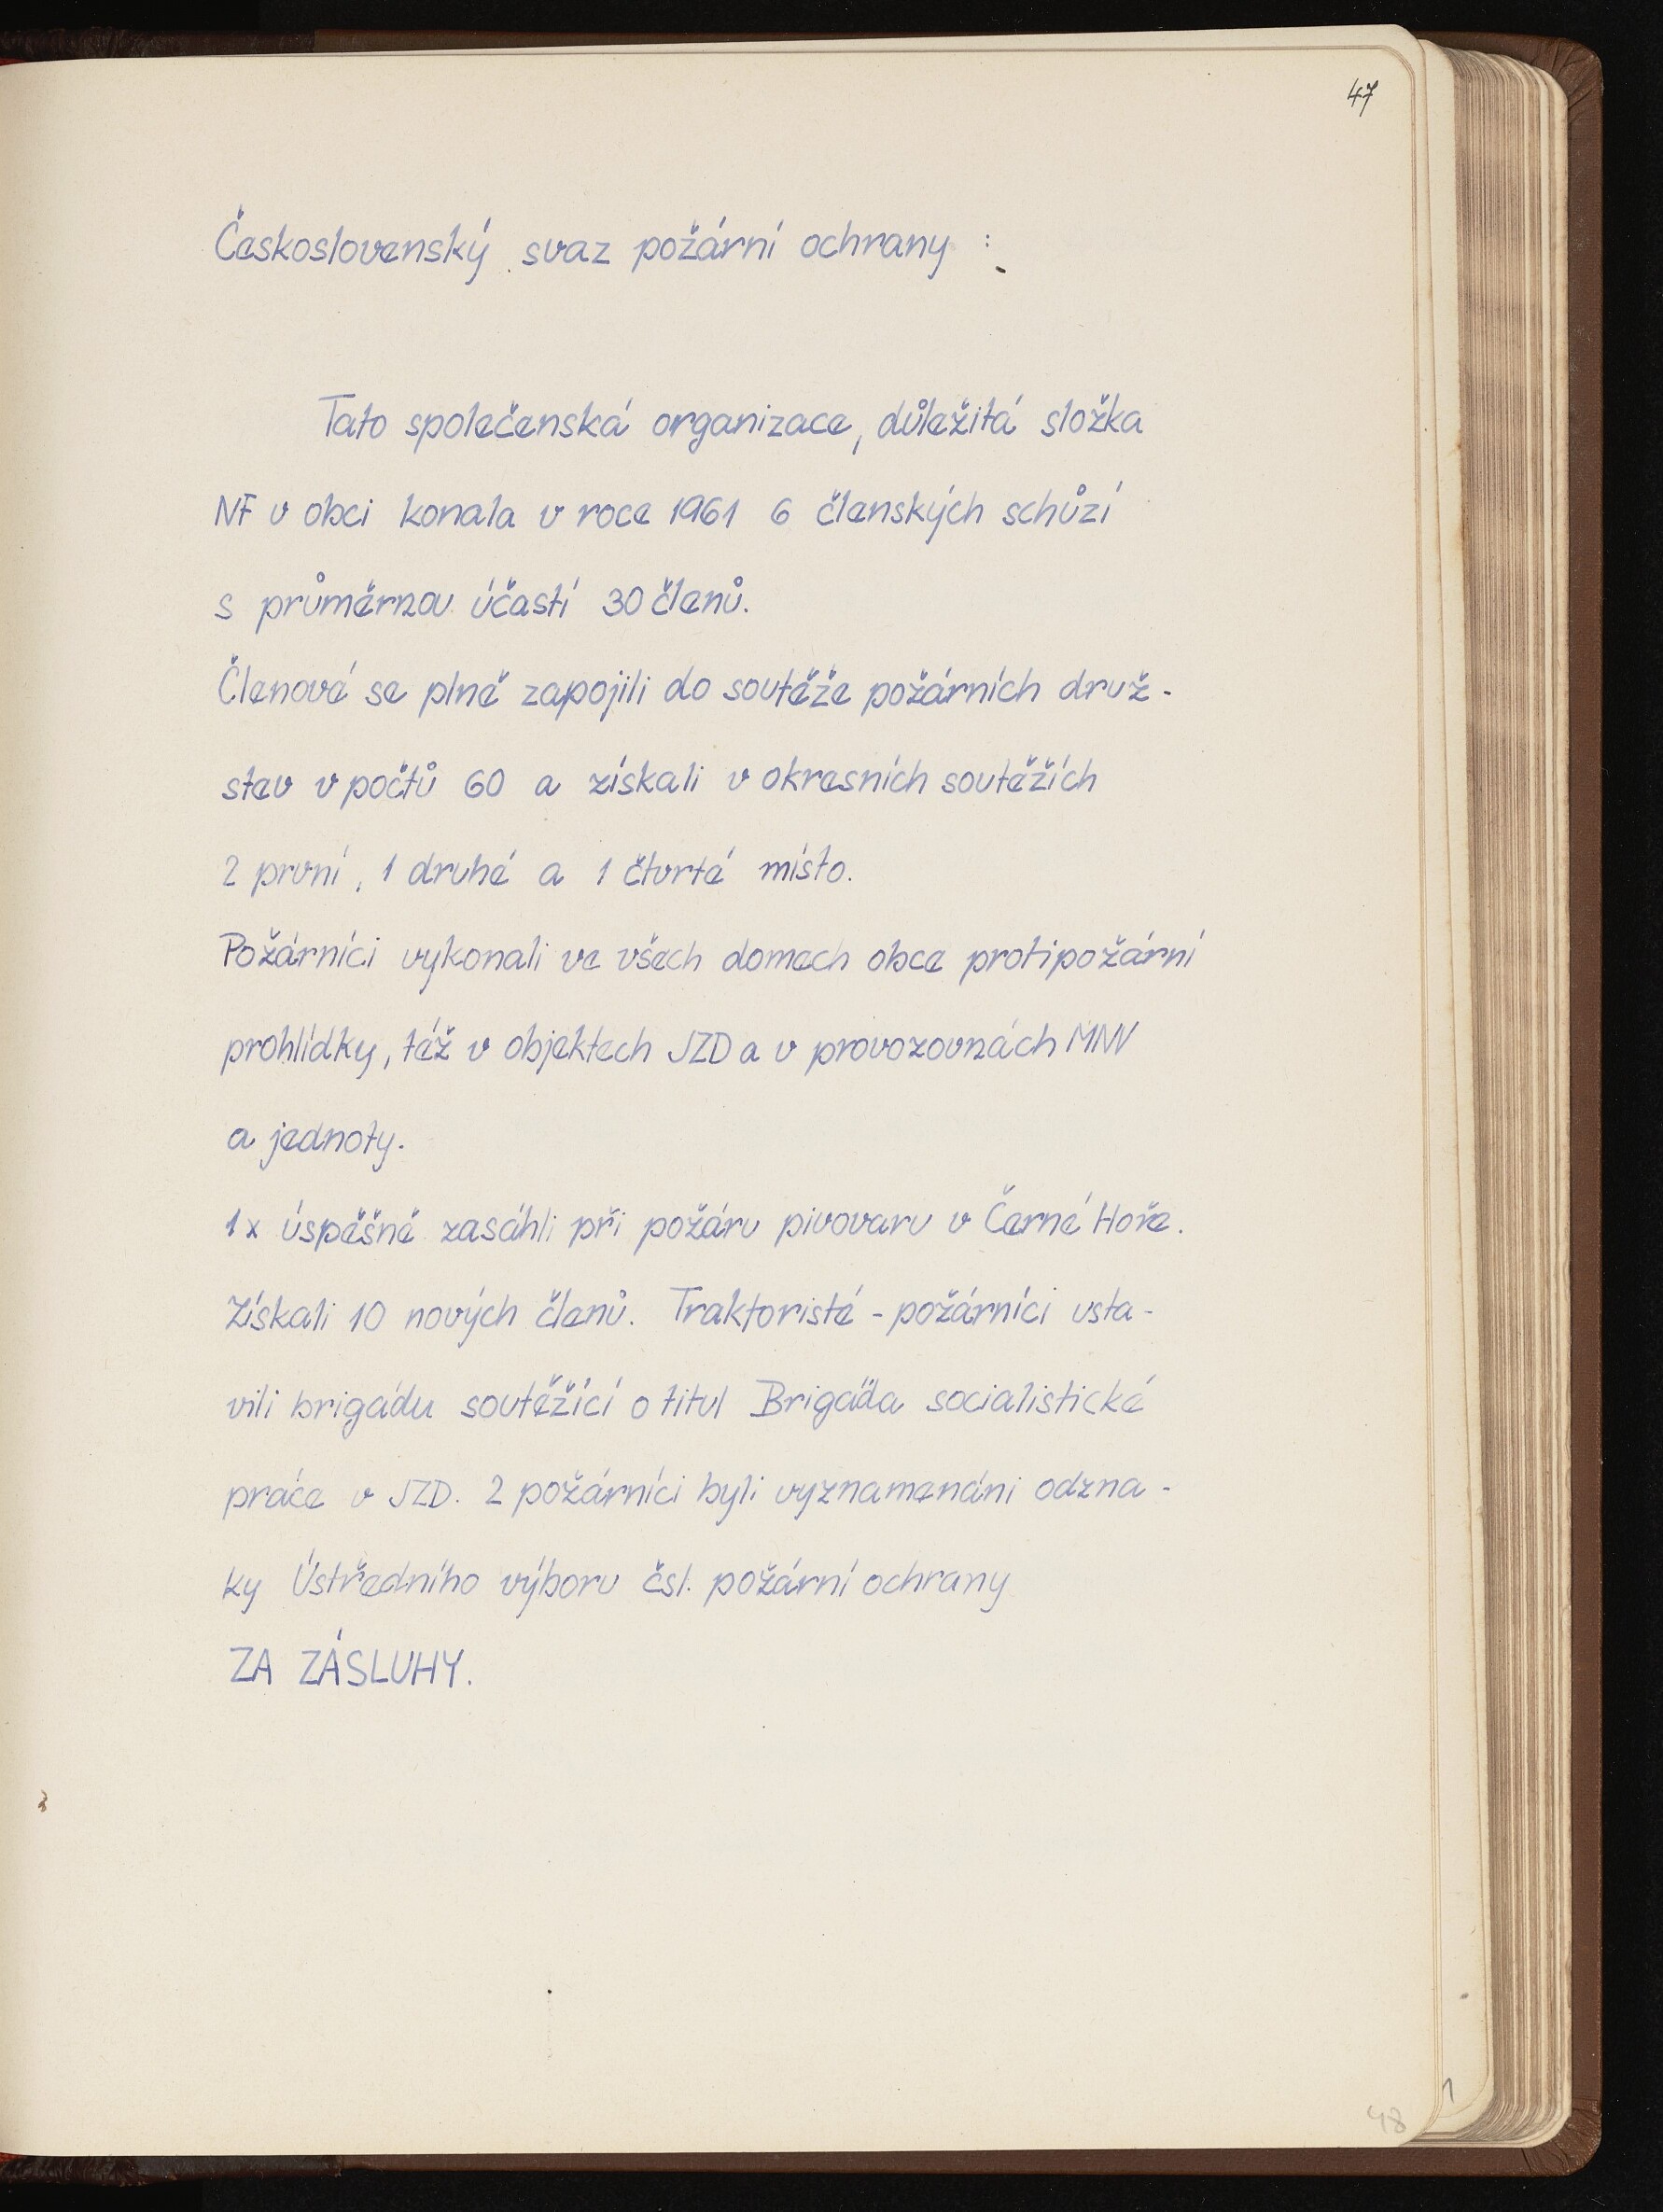 47
Československý svaz požární ochrany :
Tato společenská organizace, důležitá složka
NF v obci konala v roce 1961 6 členských schůzí
s průměrnou účastí 30 členů.
Členové se plně zapojili do soutěže požárních druž-
stev v počtů 60 a získali v okresních soutěžích
2 první, 1 druhé a 1 čtvrté místo.
Požárníci vykonali ve všech domech obce protipožární
prohlídky, též v objektech JZD a v provozovnách MNV
a jednoty.
1x úspěšně zasáhli při požáru pivovaru v Černé Hoře.
Získali 10 nových členů. Traktoristé - požárníci usta-
vili brigádu soutěžící o titul Brigáda socialistické
práce v JZD. 2 požárníci byli vyznamenáni odzna-
ky Ústředního výboru čsl. požární ochrany
ZA ZÁSLUHY.
48